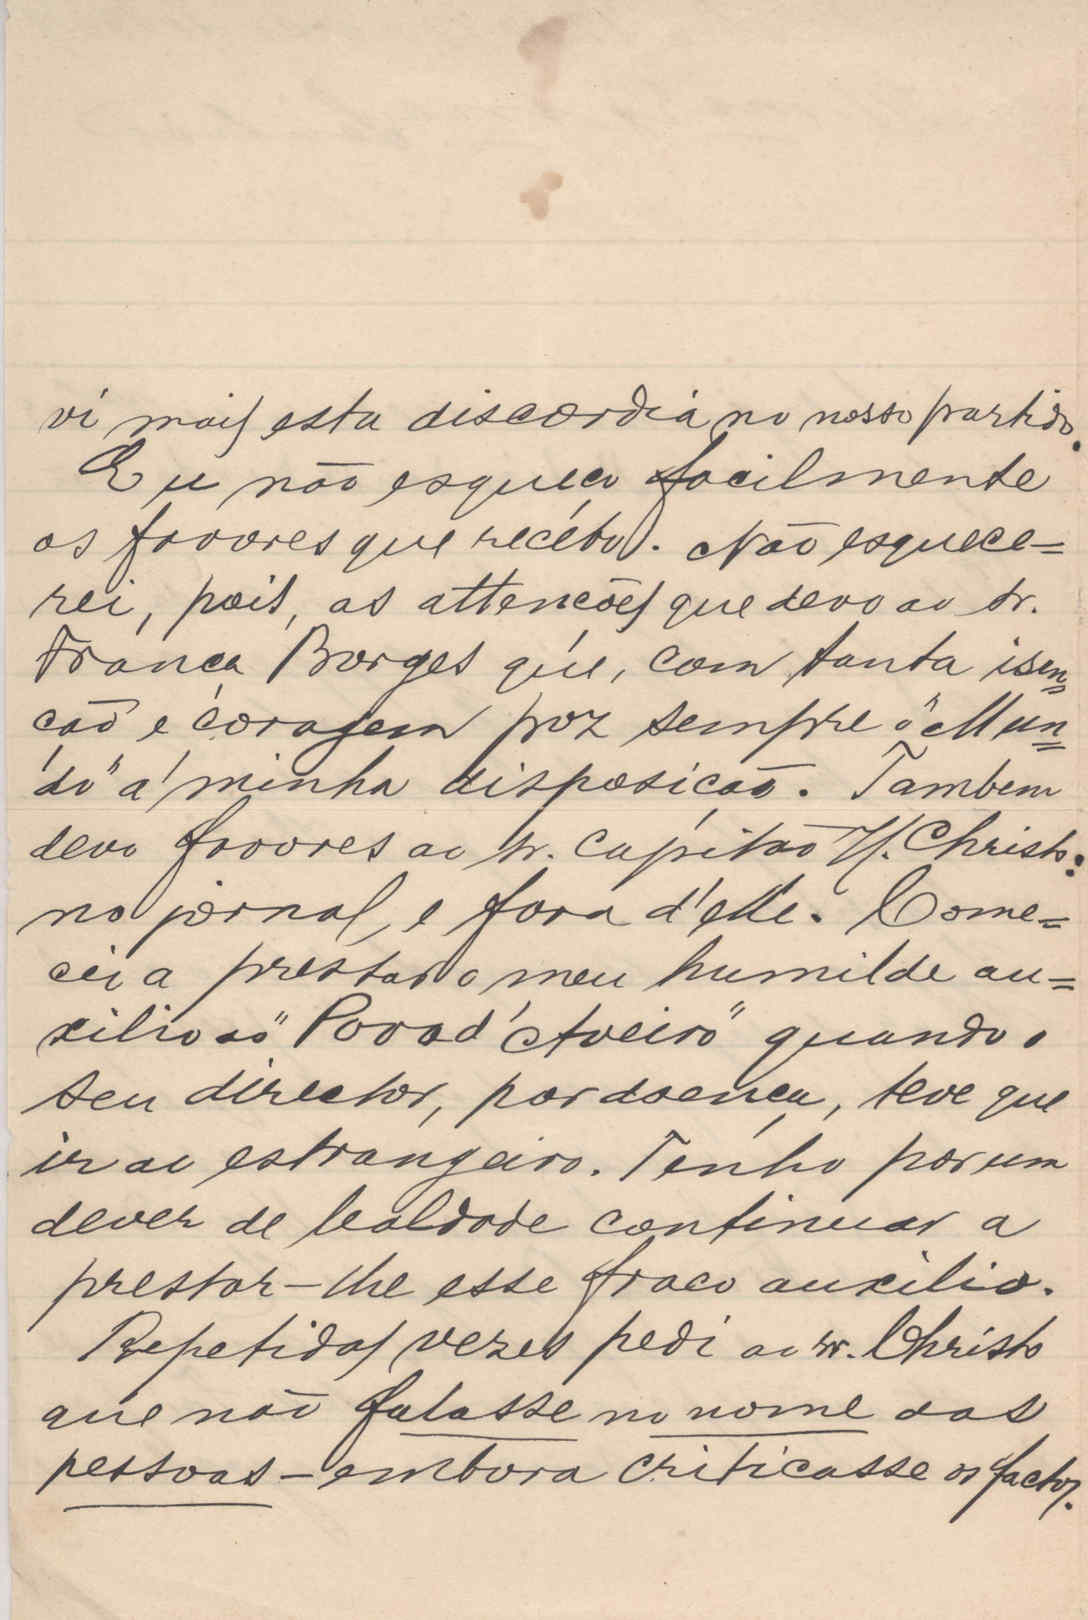 vi mais esta discordia no nosso partido.
Eu não esqueço facilmente
os favores que recebo. Não esquece=
rei, pois, as attenções que devo ao sr.
França Borges que, com tanta isen=
ção e coragem poz sempre o "Mun=
do" á minha disposição. Tambem
devo favores ao sr. capitão H. Christo:
no jornal, e fora d'elle. Come=
cei a prestar o meu humilde au=
xilio ao "Povo d'Aveiro" quando o
seu director, por doença, teve que
ir ao estrangeiro. Tenho por um
dever de lealdade continuar a
prestar-lhe esse fraco auxilio.
Repetidas vezes pedi ao sr. Christo
que não falasse no nome das
pessoas - embora criticasse os factos.